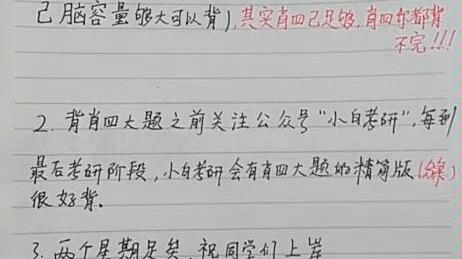 己脑容量够大可以背),其实肖四己足够,肖四你都背
不完!!!
2. 背肖四大题之前关注公众号“小白考研”,每到
最后考研阶段,小白考研会有肖四大题的精简版
很好背.
3. 两个星期足矣,祝同学们上岸